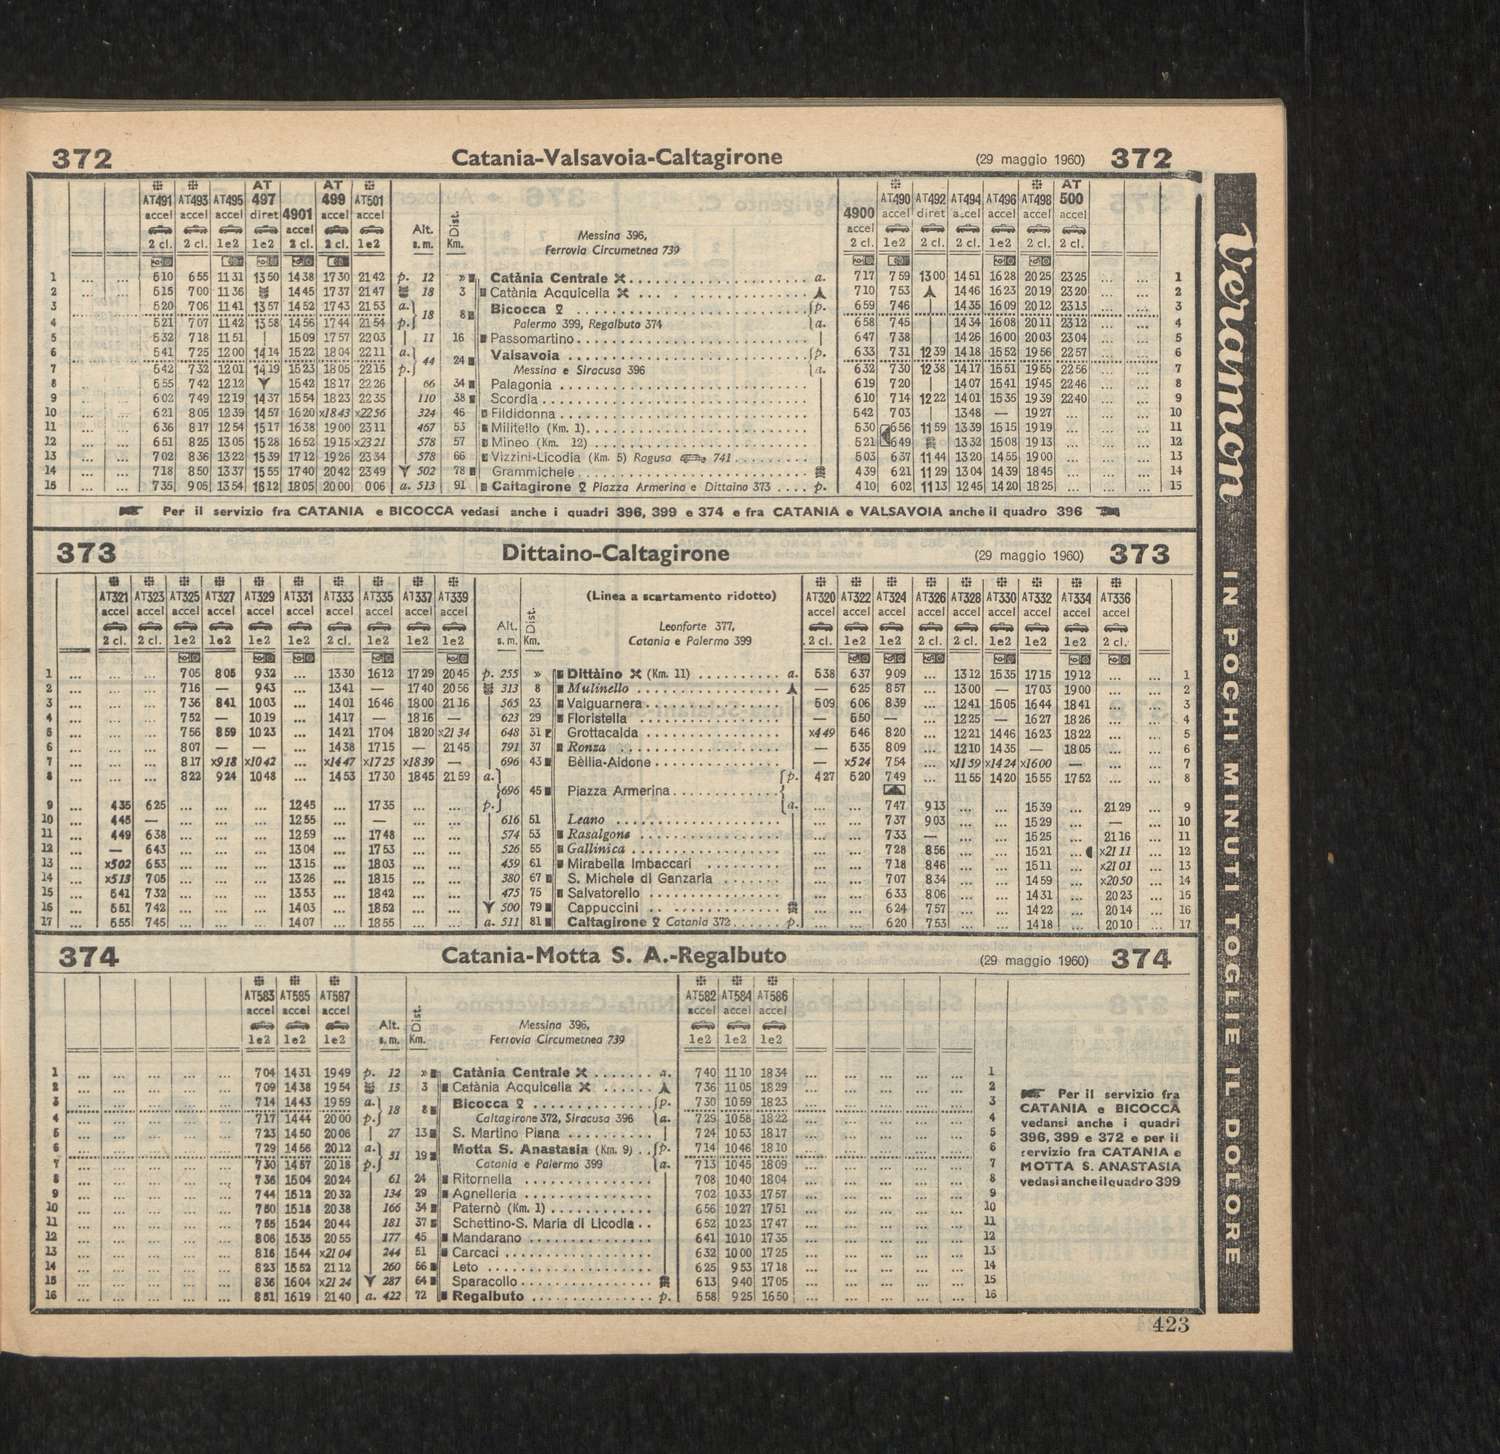 372 Catania-Valsavoia-Caltagirone (29 maggio 1960) 372
AT491 AT493 AT495 AT 497 4901 AT 499 AT501 4900 AT490 AT492 AT494 AT496 AT498 AT 500
accel accel accel diret accel accel accel accel accel diret accel accel accel accel
2 cl. 2 cl. 1e2 1e2 2 cl. 2 cl. 1e2 Alt. s.m. Dist. Km. 2 cl. 1e2 2 cl. 2 cl. 1e2 2 cl. 2 cl.
Messina 396,
Ferrovia Circumetnea 739
1 ... ... 510 655 1131 1350 1438 1730 2142 p. 12 » Catània Centrale a. 717 759 1300 1451 1628 2025 2325 ... ... 1
2 ... ... 515 700 1136 1445 1737 2147 18 3 Catània Acquicella 710 753 1446 1623 2019 2320 ... ... 2
3 ... ... 520 706 1141 1357 1452 1743 2153 a. 18 8 Bicocca p. 659 746 | 1435 1609 2012 2313 ... ... 3
4 ... ... 521 707 1142 1358 1456 1744 2154 p. Palermo 399, Regalbuto 374 a. 658 745 | 1434 1608 2011 2312 ... ... 4
5 ... ... 532 718 1151 | 1509 1757 2203 11 16 Passomartino 647 738 | 1426 1600 2003 2304 ... ... 5
6 ... ... 541 725 1200 1414 1522 1804 2211 a. 44 24 Valsavoia p. 633 731 1239 1418 1552 1956 2257 ... ... 6
7 ... ... 542 732 1201 1419 1523 1805 2215 p. Messina e Siracusa 396 a. 632 730 1238 1417 1551 1955 2256 ... ... 7
8 ... ... 555 742 1212 1542 1817 2226 66 34 Palagonia 619 720 | 1407 1541 1945 2246 ... ... 8
9 ... ... 602 749 1219 1437 1554 1823 2235 110 38 Scordia 610 714 1222 1401 1535 1939 2240 ... ... 9
10 ... ... 621 805 1239 1457 1620 x1843 x2256 324 46 Fildidonna 542 703 | 1348 — 1927 ... ... ... 10
11 ... ... 636 817 1254 1517 1638 1900 2311 467 53 Militello (Km. 1) 530 656 1159 1339 1515 1919 ... ... ... 11
12 ... ... 651 825 1305 1528 1652 1915 x2321 578 57 Mineo (Km. 12) 521 649 1332 1508 1913 ... ... ... 12
13 ... ... 702 836 1322 1539 1712 1926 2334 578 66 Vizzini-Licodia (Km. 5) Ragusa 741 503 637 1144 1320 1455 1900 ... ... ... 13
14 ... ... 718 850 1337 1555 1740 2042 2349 502 78 Grammichele 439 621 1129 1304 1439 1845 ... ... ... 14
15 ... ... 735 905 1354 1612 1805 2000 006 a. 513 91 Caltagirone Piazza Armerina e Dittaino 373 p. 410 602 1113 1245 1420 1825 ... ... ... 15
Per il servizio fra CATANIA e BICOCCA vedasi anche i quadri 396, 399 e 374 e fra CATANIA e VALSAVOIA anche il quadro 396
373 Dittaino-Caltagirone (29 maggio 1960) 373
AT321 AT323 AT325 AT327 AT329 AT331 AT333 AT335 AT337 AT339 (Linea a scartamento ridotto) AT320 AT322 AT324 AT326 AT328 AT330 AT332 AT334 AT336
accel accel accel accel accel accel accel accel accel accel accel accel accel accel accel accel accel accel accel
2 cl. 2 cl. 1e2 1e2 1e2 1e2 2 cl. 1e2 1e2 1e2 Alt. s.m. Dist. Km. 2 cl. 1e2 1e2 2 cl. 2 cl. 1e2 1e2 1e2 2 cl.
Leonforte 377,
Catania e Palermo 399
1 ... ... ... 705 805 932 ... 1330 1612 1729 2045 p. 255 » Dittàino (Km. 11) a. 538 637 909 ... 1312 1535 1715 1912 ... ... 1
2 ... ... ... 716 — 943 ... 1341 — 1740 2056 313 8 Mulinello — 625 857 ... 1300 — 1703 1900 ... ... 2
3 ... ... ... 736 841 1003 ... 1401 1646 1800 2116 565 23 Valguarnera 509 606 839 ... 1241 1505 1644 1841 ... ... 3
4 ... ... ... 752 — 1019 ... 1417 — 1816 — 623 29 Floristella — 550 — ... 1225 — 1627 1826 ... ... 4
5 ... ... ... 756 859 1023 ... 1421 1704 1820 x2134 648 31 Grottacalda x449 546 820 ... 1221 1446 1623 1822 ... ... 5
6 ... ... ... 807 — — ... 1438 1715 — 2145 791 37 Ronza — 535 809 ... 1210 1435 — 1805 ... ... 6
7 ... ... ... 817 x918 x1042 ... x1447 x1725 x1839 — 696 43 Bèllia-Aidone — x524 754 ... x1159 x1424 x1600 — ... ... 7
8 ... ... ... 822 924 1048 ... 1453 1730 1845 2159 a. 696 45 Piazza Armerina p. 427 520 749 ... 1155 1420 1555 1752 ... ... 8
9 ... 435 625 ... ... ... 1245 ... 1735 ... ... p. a. ... ... 747 913 ... ... 1539 ... 2129 ... 9
10 ... 445 — ... ... ... 1255 ... — ... ... 616 51 Leano ... ... 737 903 ... ... 1529 ... — ... 10
11 ... 449 638 ... ... ... 1259 ... 1748 ... ... 574 53 Rasalgone ... ... 733 — ... ... 1525 ... 2116 ... 11
12 ... — 643 ... ... ... 1304 ... 1753 ... ... 526 55 Gallinica ... ... 728 856 ... ... 1521 ... x2111 ... 12
13 ... x502 653 ... ... ... 1315 ... 1803 ... ... 459 61 Mirabella Imbaccari ... ... 718 846 ... ... 1511 ... x2101 ... 13
14 ... x513 705 ... ... ... 1326 ... 1815 ... ... 380 67 S. Michele di Ganzaria ... ... 707 834 ... ... 1459 ... x2050 ... 14
15 ... 541 732 ... ... ... 1353 ... 1842 ... ... 475 75 Salvatorello ... ... 633 806 ... ... 1431 ... 2023 ... 15
16 ... 551 742 ... ... ... 1403 ... 1852 ... ... 500 79 Cappuccini ... ... 624 757 ... ... 1422 ... 2014 ... 16
17 ... 555 745 ... ... ... 1407 ... 1855 ... ... a. 511 81 Caltagirone Catania 372 p. ... ... 620 753 ... ... 1418 ... 2010 ... 17
374 Catania-Motta S. A.-Regalbuto (29 maggio 1960) 374
AT583 AT585 AT587 AT582 AT584 AT586
accel accel accel accel accel accel
1e2 1e2 1e2 Alt. s.m. Dist. Km. 1e2 1e2 1e2
Messina 396,
Ferrovia Circumetnea 739
1 ... ... ... ... ... 704 1431 1949 p. 12 » Catània Centrale a. 740 1110 1834 ... ... ... ... ... 1
2 ... ... ... ... ... 709 1438 1954 13 3 Catània Acquicella 736 1105 1829 ... ... ... ... ... 2
3 ... ... ... ... ... 714 1443 1959 a. 18 8 Bicocca p. 730 1059 1823 ... ... ... ... ... 3
4 ... ... ... ... ... 717 1444 2000 p. Caltagirone 372, Siracusa 396 a. 729 1058 1822 ... ... ... ... ... 4
5 ... ... ... ... ... 723 1450 2006 27 13 S. Martino Piana 724 1053 1817 ... ... ... ... ... 5
6 ... ... ... ... ... 729 1456 2012 a. 31 19 Motta S. Anastasia (Km. 9) p. 714 1046 1810 ... ... ... ... ... 6
7 ... ... ... ... ... 730 1457 2018 p. Catania e Palermo 399 a. 713 1045 1809 ... ... ... ... ... 7
8 ... ... ... ... ... 736 1504 2024 61 24 Ritornella 708 1040 1804 ... ... ... ... ... 8
9 ... ... ... ... ... 744 1512 2032 134 29 Agnelleria 702 1033 1757 ... ... ... ... ... 9
10 ... ... ... ... ... 750 1518 2038 166 34 Paternò (Km. 1) 656 1027 1751 ... ... ... ... ... 10
11 ... ... ... ... ... 755 1524 2044 181 37 Schettino-S. Maria di Licodia 652 1023 1747 ... ... ... ... ... 11
12 ... ... ... ... ... 806 1535 2055 177 45 Mandarano 641 1010 1735 ... ... ... ... ... 12
13 ... ... ... ... ... 816 1544 x2104 244 51 Carcaci 632 1000 1725 ... ... ... ... ... 13
14 ... ... ... ... ... 823 1552 2112 260 56 Leto 625 953 1718 ... ... ... ... ... 14
15 ... ... ... ... ... 836 1604 x2124 287 64 Sparacollo 613 940 1705 ... ... ... ... ... 15
16 ... ... ... ... ... 851 1619 2140 a. 422 72 Regalbuto p. 558 925 1650 ... ... ... ... ... 16
Per il servizio fra
CATANIA e BICOCCA
vedansi anche i quadri
396, 399 e 372 e per il
servizio fra CATANIA e
MOTTA S. ANASTASIA
vedasi anche il quadro 399
423
Veramon IN POCHI MINUTI TOGLIE IL DOLORE